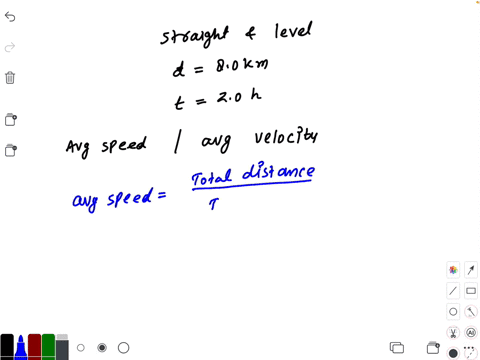 straight & level
d = 8.0 km
t = 2.0 h
Avg speed / avg velocity
avg speed = Total distance
T